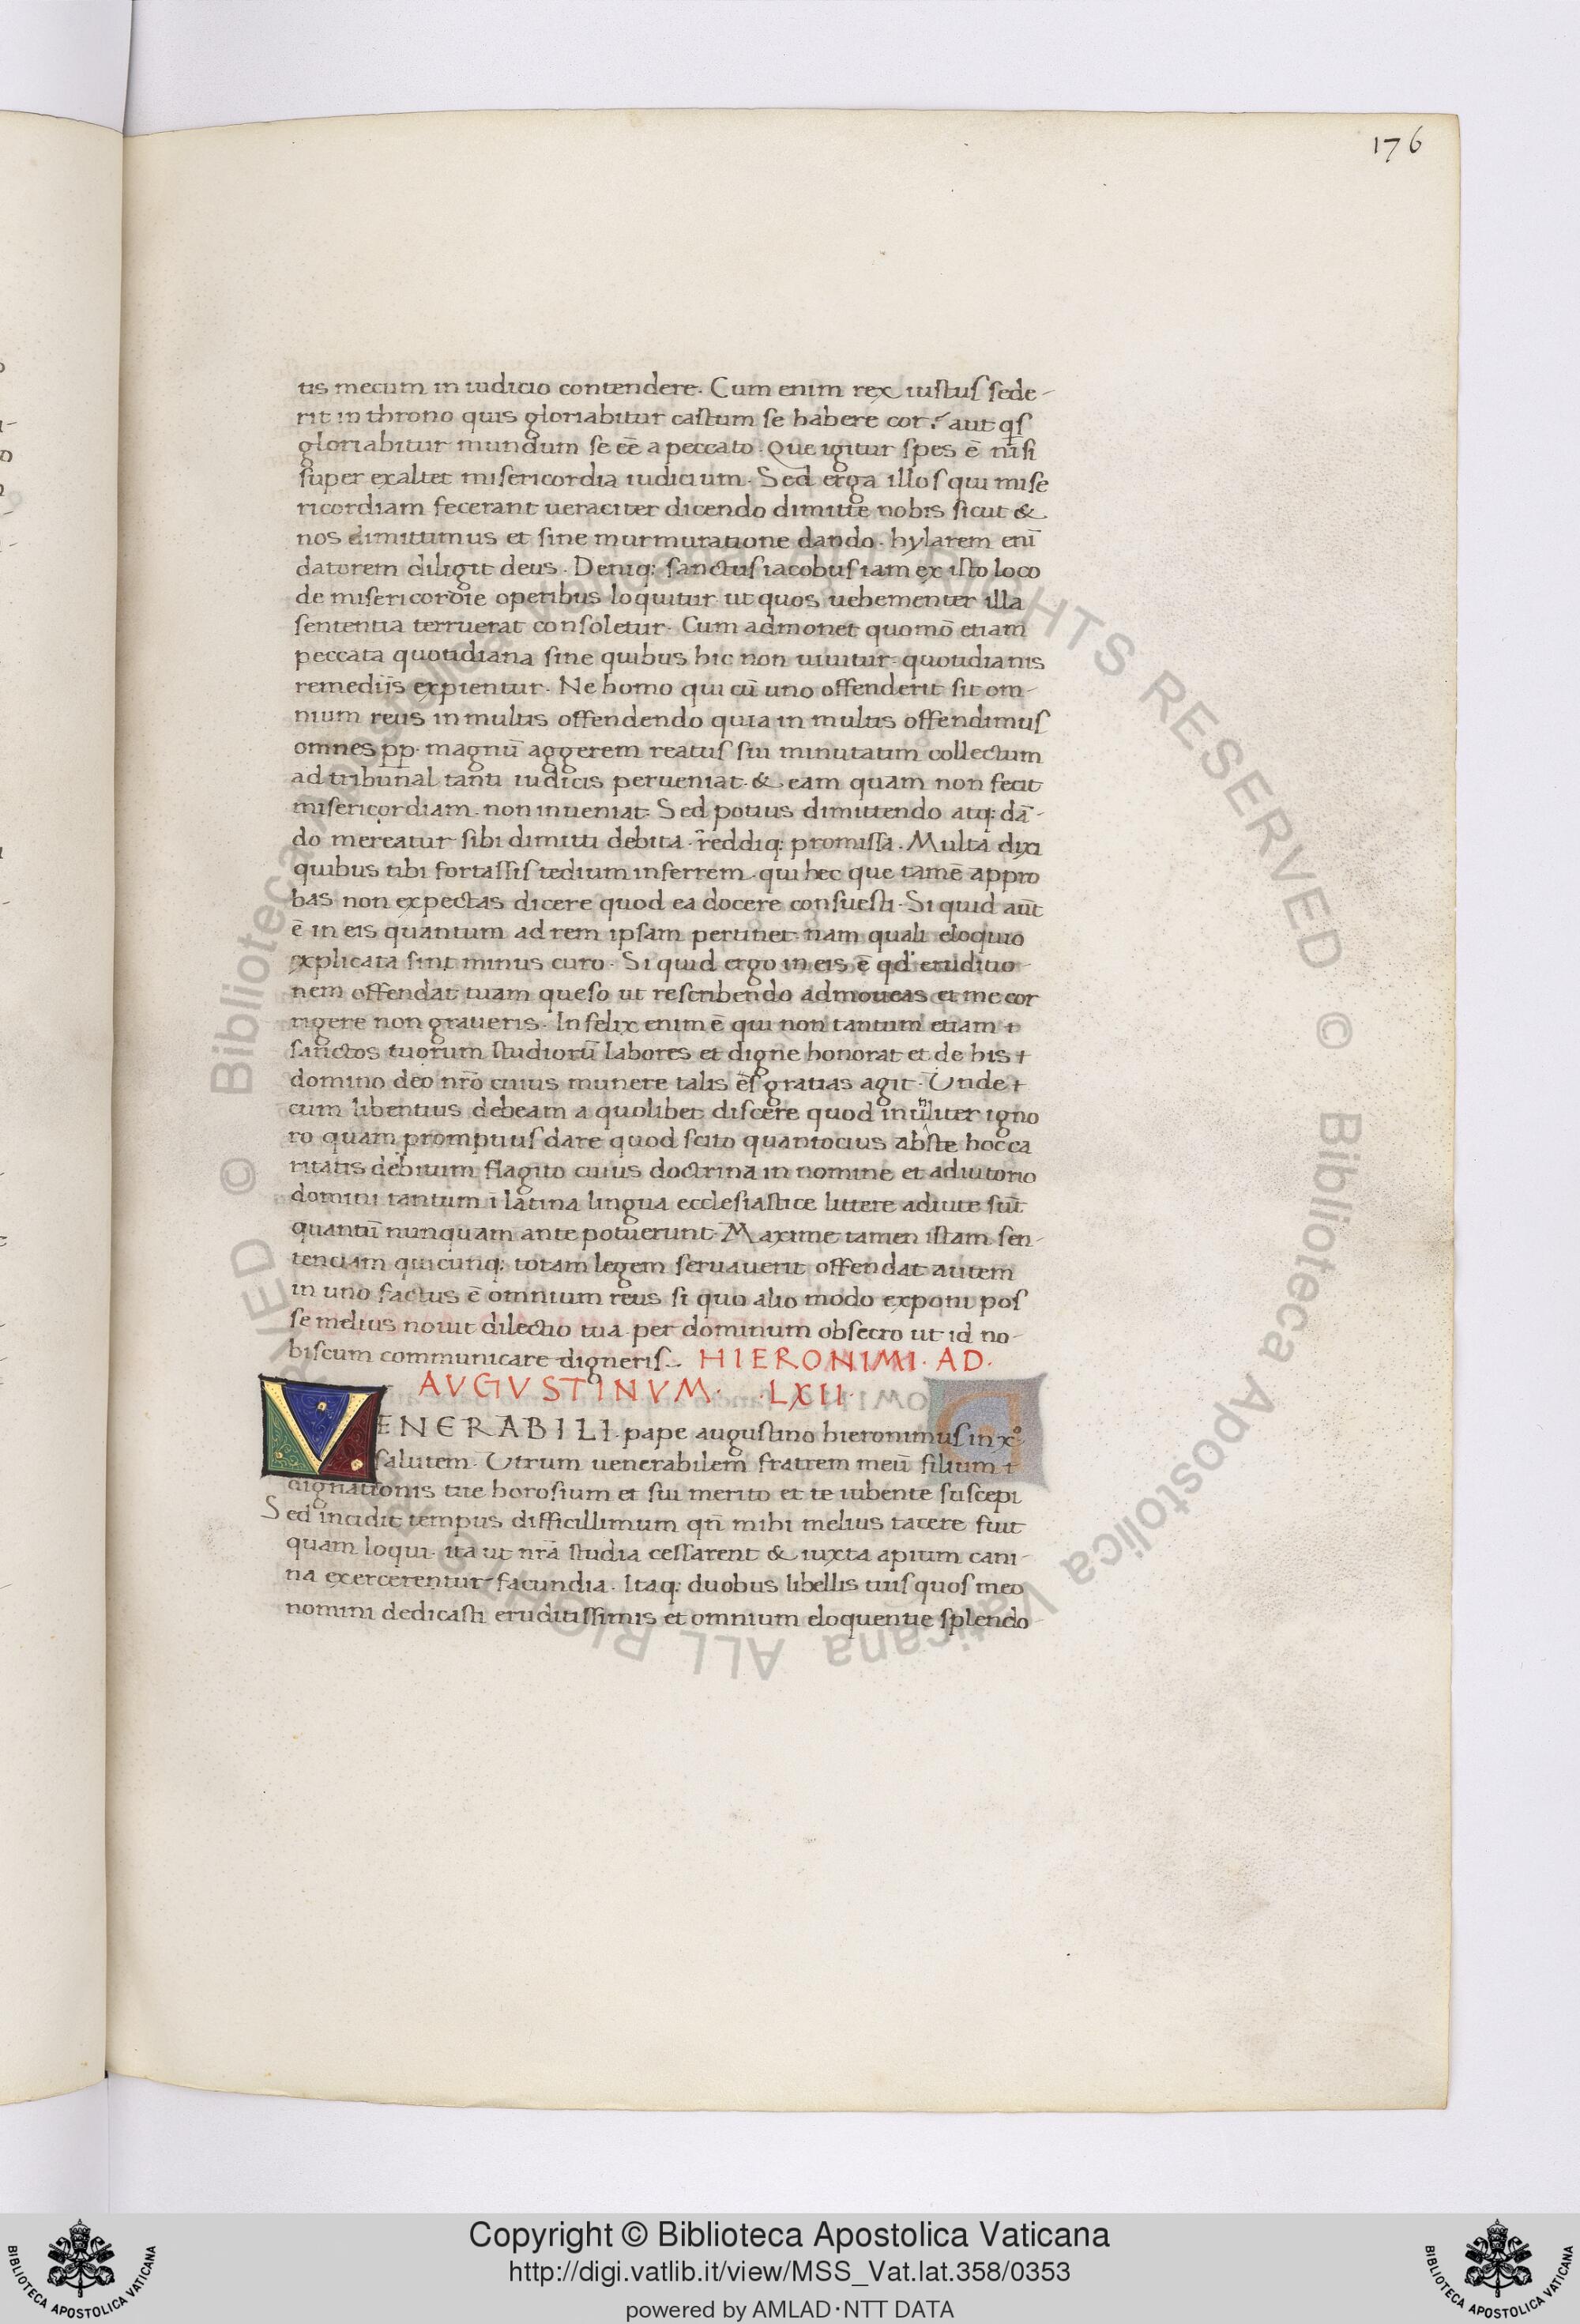 176
tis mecum in iudicio contendere. Cum enim rex iustus sede-
rit in throno quis gloriabitur castum se habere cor? aut qs
gloriabitur mundum se eē a peccato. Que igitur spes ē nisi
super exaltet misericordia iudicium. Sed erga illos qui mise
ricordiam fecerant ueraciter dicendo dimitte nobis sicut &
nos dimittimus et sine murmuratione dando. hylarem eni̅
datorem diligit deus. Deniq: sanctus iacobus iam ex isto loco
de misericordie operibus loquitur ut quos uehementer illa
sententia terruerat consoletur. Cum admonet quomō etiam
peccata quotidiana sine quibus hic non uiuitur quotidianis
remediis expientur. Ne homo qui cū uno offenderit sit om-
nium reus in multis offendendo quia in multis offendimus
omnes p̲p̲. magnū aggerem reatus sui minutatim collectum
ad tribunal tanti iudicis perueniat. & eam quam non fecit
misericordiam. non inueniat. Sed potius dimittendo atq: dā-
do mereatur sibi dimitti debita. reddiq: promissa. Multa dixi
quibus tibi fortassis tedium inferrem. qui hec que tamē appro
bas non expectas dicere quod ea docere consuesti. Si quid aut̅
ē in eis quantum ad rem ipsam pertinet nam quali eloquio
explicata sint minus curo. Si quid ergo in eis ē qd' eruditio-
nem offendat tuam queso ut rescribendo admoueas et me cor
rigere non graueris. Infelix enim ē qui non tantum etiam t
sanctos tuorum studiorū labores et digne honorat et de his t
domino deo nr̅o cuius munere talis ēs gratias agit. Unde t
cum libentius debeam a quolibet discere quod inutiliter igno
ro quam promptius dare quod scito quantocius abste hoc ca
ritatis debitum flagito cuius doctrina in nomine et adiutorio
domini tantum ī latina lingua ecclesiastice littere adiute sūt
quantū nunquam ante potuerunt. Maxime tamen istam sen-
tenciam quicunq: totam legem seruauerit offendat autem
in uno factus ē omnium reus si quo alio modo exponi pos
se melius nouit dilectio tua. per dominum obsecro ut id no-
biscum communicare digneris. HIERONIMI. AD.
AVGVSTINVM. .LXII.
VENERABILI. pape augustino hieronimus in xº
salutem. Utrum uenerabilem fratrem meū filium t
dignationis tue horosium et sui merito et te iubente suscepi
Sed incidit tempus difficillimum qn̅ mihi melius tacere fuit
quam loqui. ita ut nr̅a studia cessarent & iuxta apium cani-
na exercerentur facundia. Itaq: duobus libellis tuis quos meo
nomini dedicasti eruditissimis et omnium eloquentie splendo-
© Biblioteca Apostolica Vaticana ALL RIGHTS RESERVED © Biblioteca Apostolica Vaticana ALL RIGHTS RESERVED
BIBLIOTECA APOSTOLICA VATICANA
Copyright © Biblioteca Apostolica Vaticana
http://digi.vatlib.it/view/MSS_Vat.lat.358/0353
powered by AMLAD·NTT DATA
BIBLIOTECA APOSTOLICA VATICANA